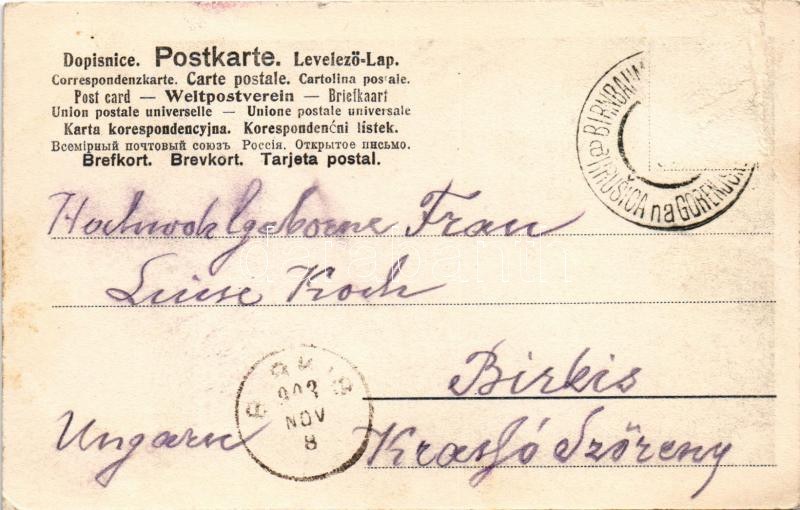 Dopisnice. Postkarte. Levelező-Lap.
Correspondenzkarte. Carte postale. Cartolina postale.
Post card — Weltpostverein — Briefkaart
Union postale universelle — Unione postale universale
Karta korespondencyjna. Korespondenčni listek.
Всемірный почтовый союзъ Россія. Открытое письмо.
Brefkort. Brevkort. Tarjeta postal.
BIRNBAUM
HRUŠICA na GORENJSK
Hochwohlgeborne Frau
Luise Koch
Birkis
903
NOV
8
Ungarn
Krassó Szöreny